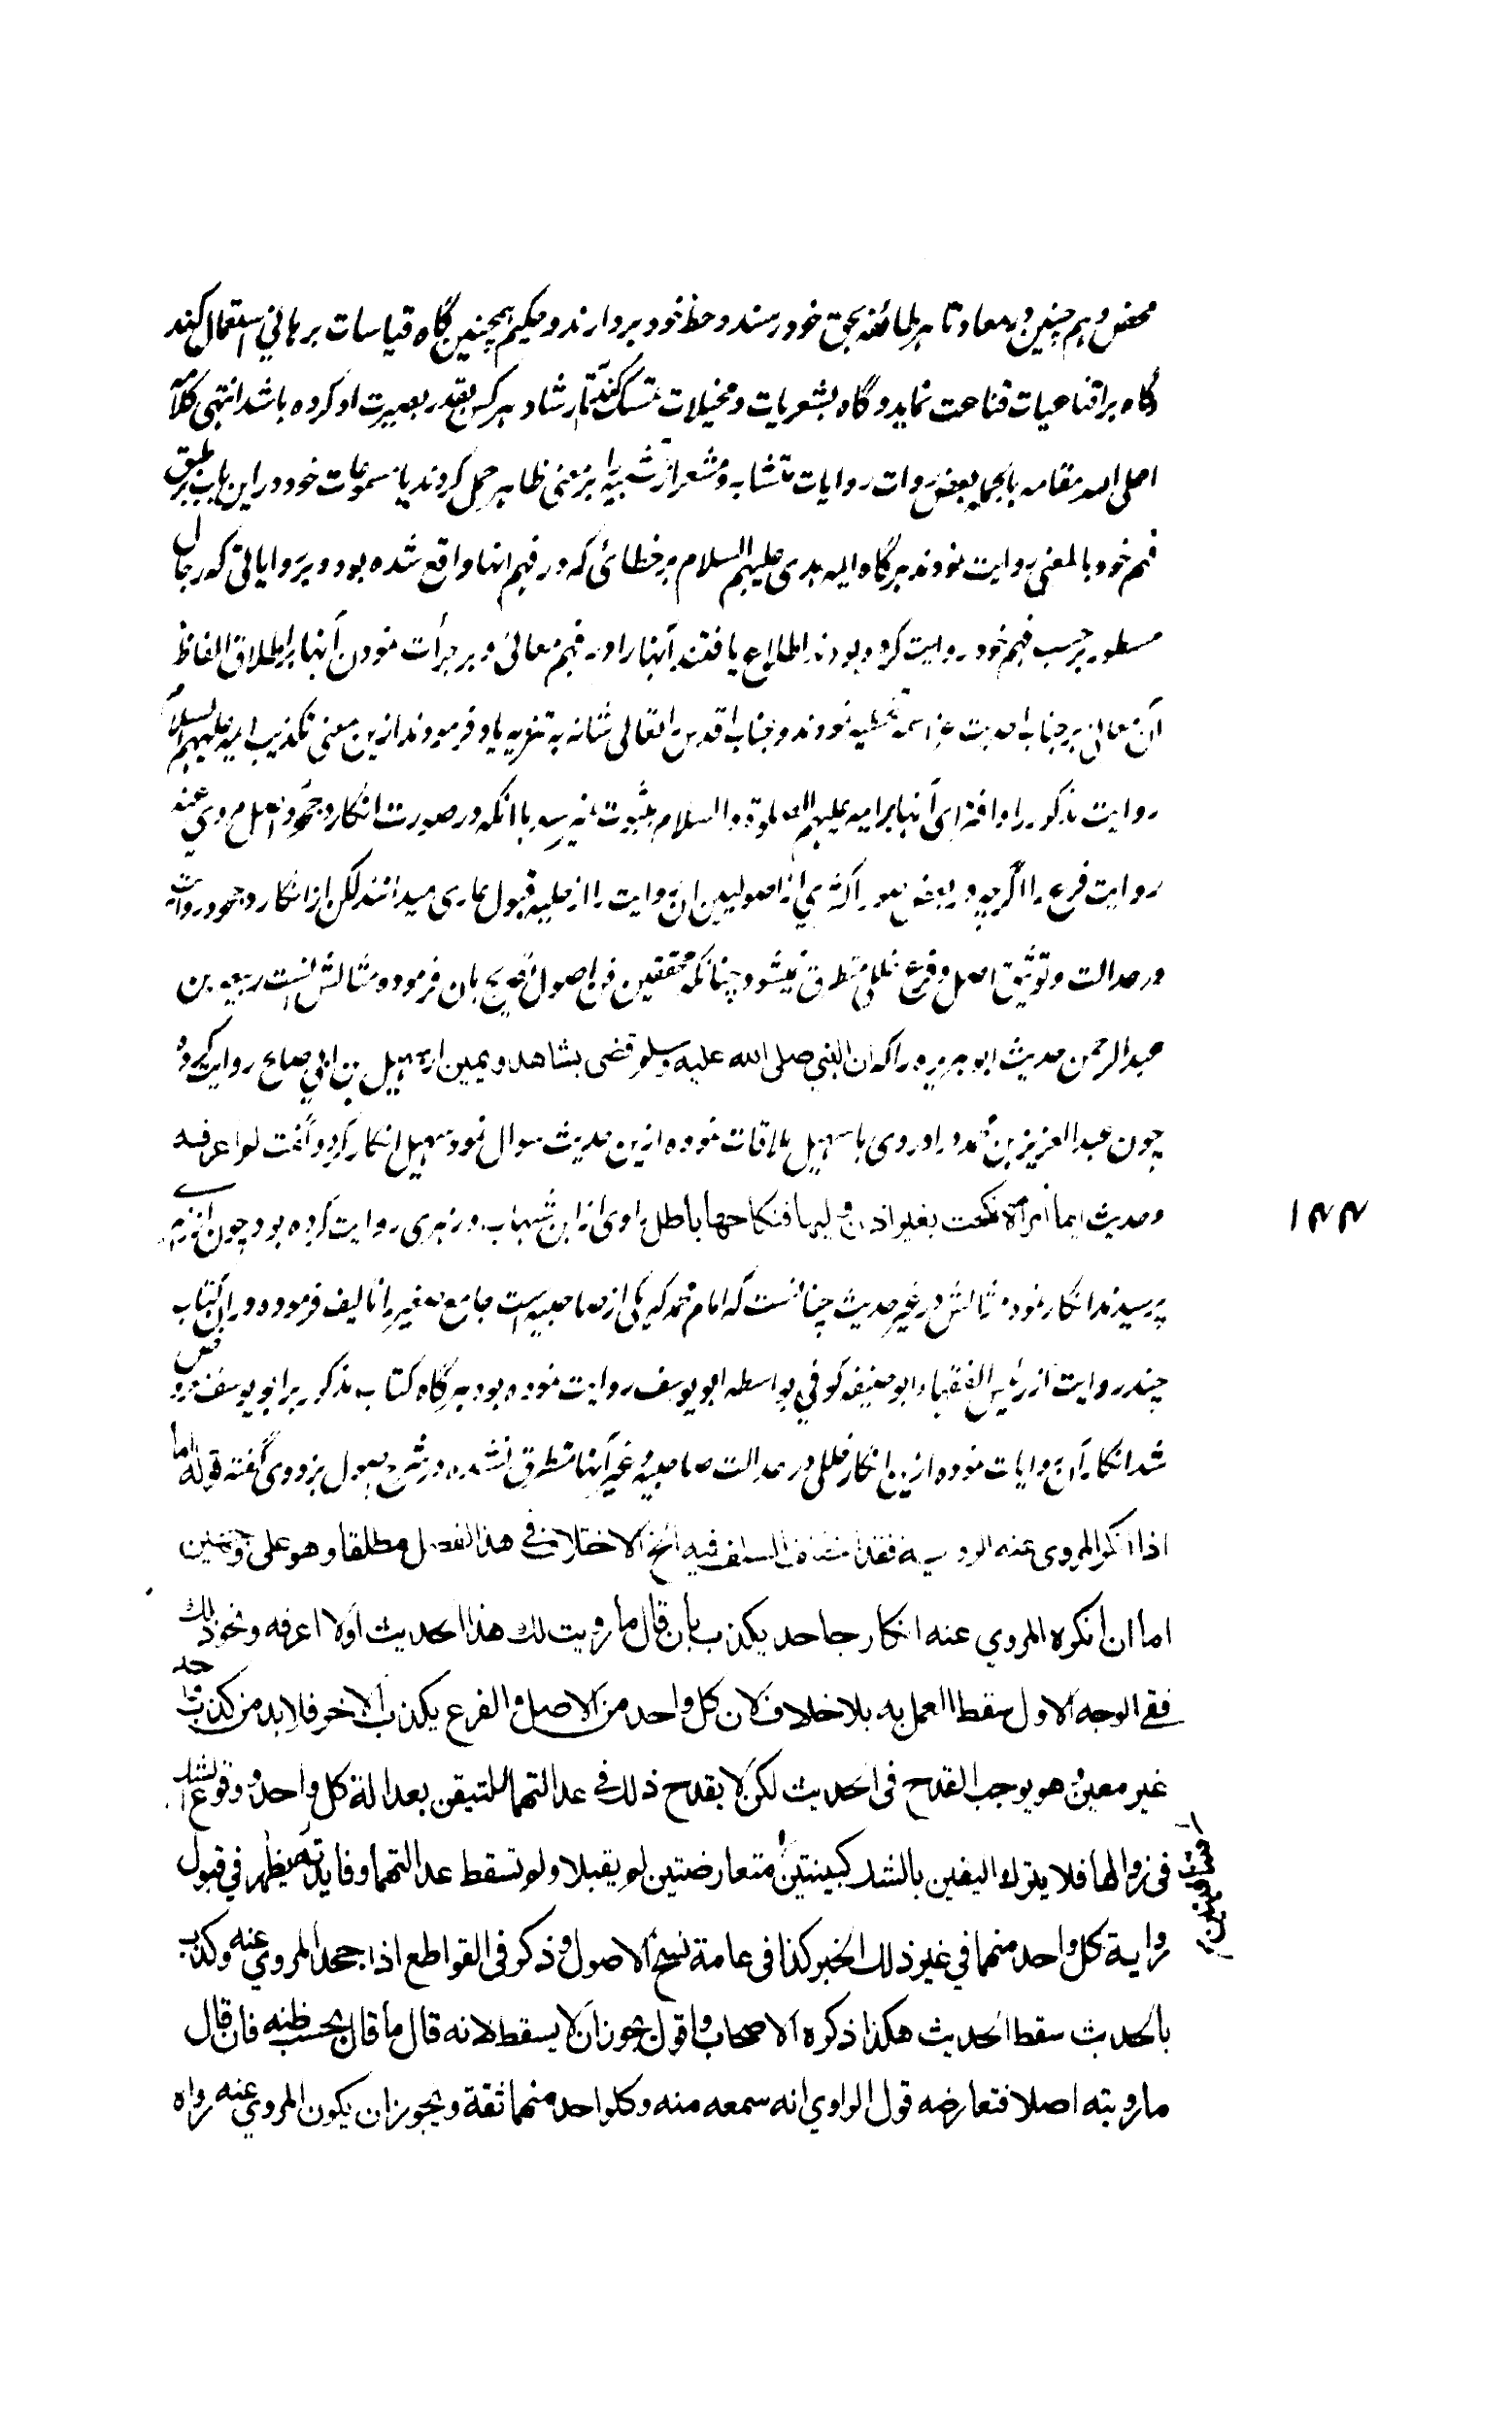 محض و هم چنین در معاد تا هر طائفه بحق خود رسند و حظ خود بردارند و حکیم همچنین گاه قیاسات برهانی استعمال کند
و گاه بر اقناعیات قناعت نماید و گاه بشعریات و مخیلات تمسک کند تا ارشاد هر کس بقدر بصیرت او کرده باشد انتهی کلامه
اعلی الله مقامه بالجمله بعض روات روایات متشابه و مشعر از تشبیه را بر معنی ظاهر حمل کردند یا مسموعات خود در این باب بر طبق
فهم خود بالمعنی روایت نمودند هر گاه ایمه هدی علیهم السلام بر خطائی که در فهم انها واقع شده بود و بر روایاتی که رجال
مسطور بر حسب فهم خود روایت کرده بودند اطلاع یافتند آنها را در فهم معانی و بر جرأت نمودن آنها بر اطلاق الفاظ
آن معانی بر جناب احدیت عز اسمه تخطیه نمودند و جناب اقدس تعالی شانه به تنزیه یاد فرمودند ازین معنی تکذیب ایمه علیهم السلام
روایت مذکور را و افترای آنها بر ایمه علیهم الصلوة و السلام بثبوت نمیرسد با آنکه در صورت انکار و جحود اصل مروی عنه
روایت فرع را اگرچه در بعض صور اکثری از اصولیین ان روایت را از حلیه قبول عاری میدانند لکن از انکار و جحود روایت
در عدالت و توثیق اصل و فرع خللی متطرق نمیشود چنانکه محققین فن اصول تصریح بان فرموده مثالش انست ربیعه بن
عبدالرحمن حدیث ابو هریره را که ان النبی صلی الله علیه وسلم قضی بشاهد و یمین از سهیل بن ابی صالح روایت کرده
چون عبدالعزیز بن محمد دراوردی با سهیل ملاقات نموده ازین حدیث سوال نمود سهیل انکار کرد و گفت لم اعرفه
و حدیث ایما امرأة نکحت بغیر اذن ولیها فنکاحها باطل راوی از ابن شهاب زهری روایت کرده بود چون از زهری
پرسیدند انکار نمود مثالش در غیر حدیث چنانست که امام محمد که یکی از صاحبیه است جامع صغیر را تالیف فرموده در ان کتاب
چند روایت از رئیس الفقهاء ابو حنیفه کوفی بواسطه ابو یوسف روایت نموده بود هر گاه کتاب مذکور بر ابو یوسف عرض
شد انکار آن روایات نموده ازین انکار خللی در عدالت صاحبیه و غیر آنها متطرق نشده در شرح اصول بزدوی گفته قوله اما
اذا انکر المروی عنه الروایة فقد اختلف السلف فیه الخ الاختلاف فی هذا الفصل مطلقا و هو علی وجهین
اما ان انکره المروی عنه انکار جاحد یکذب بان قال ما رویت لک هذا الحدیث او لا اعرفه و نحو ذلک
ففی الوجه الاول سقط العمل به بلا خلاف لان کل واحد من الاصل و الفرع یکذب الاخر فلا بد من کذب واحد
غیر معین هو یوجب القدح فی الحدیث لکن لا یقدح ذلک فی عدالتهما للتیقن بعدالة کل واحد و وقوع الشک
فی زوالها فلا یترک الیقین بالشک کبینتین متعارضتین لم یقبلا و لم تسقط عدالتهما و فایدته یظهر فی قبول
روایة کل واحد منهما فی غیر ذلک الخبر کذا فی عامة نسخ الاصول و ذکر فی القواطع اذا جحد المروی عنه و کذب
بالحدیث سقط الحدیث هکذا ذکره الاصحاب و اقول یجوز ان لا یسقط لانه قال ما قال بحسب ظنه فان قال
ما رویته اصلا فتعارضه قول الراوی انه سمعه منه و کل واحد منهما ثقة و یجوز ان یکون المروی عنه رواه
۱۴۴